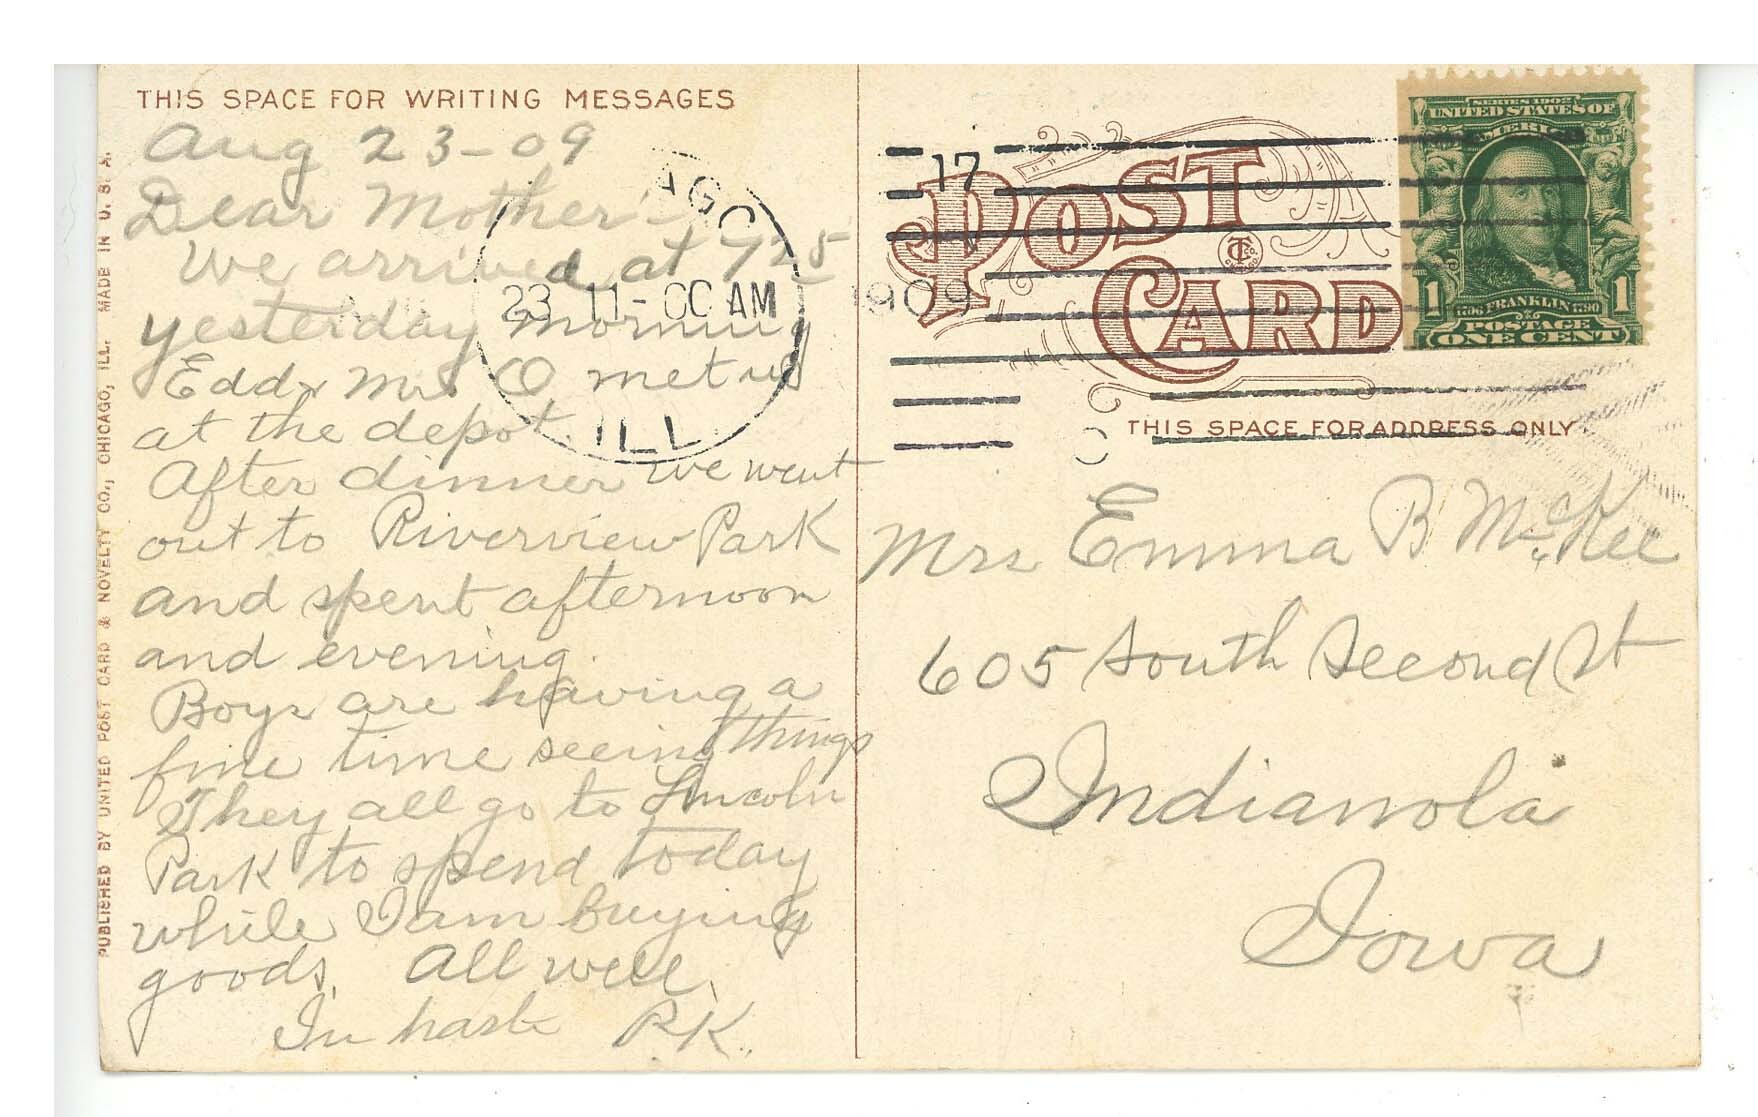 THIS SPACE FOR WRITING MESSAGES
Aug 23-09
Dear Mother-
We arrived at 725
yesterday morning
Edd & Mrs O met us
at the depot.
After dinner we went
out to Riverview Park
and spent afternoon
and evening.
Boys are having a
fine time seeing things
They all go to Lincoln
Park to spend today
while I am buying
goods. All well.
In haste R.K.
PUBLISHED BY UNITED POST CARD & NOVELTY CO., CHICAGO, ILL. MADE IN U. S. A.
AGO
23 11-00 AM
ILL.
17
1909
POST
CARD
THIS SPACE FOR ADDRESS ONLY
SERIES 1902
UNITED STATES OF
AMERICA
1 FRANKLIN 1
1706 1790
POSTAGE
ONE CENT
Mrs Emma B McKee
605 South Second St
Indianola
Iowa